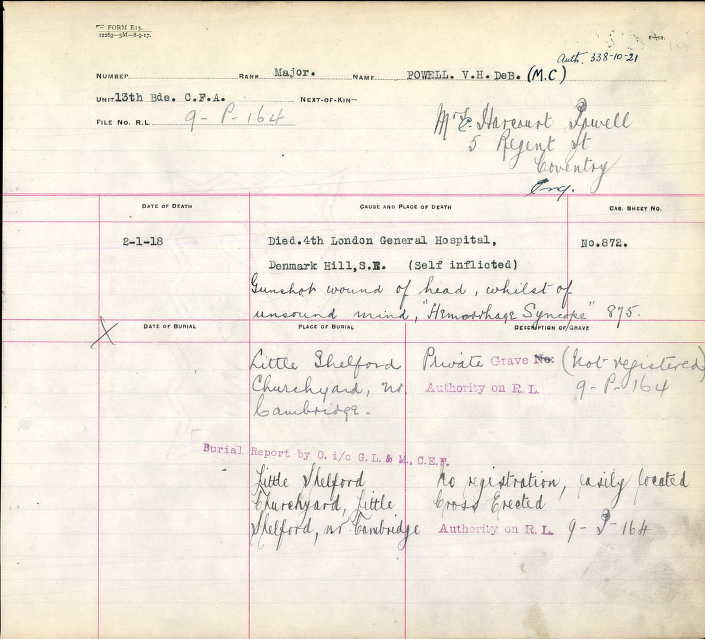 FORM E15.
12269—5M—8-9-17.
Auth. 338-10-21
NUMBER RANK Major. NAME POWELL. V.H. DeB. (M.C)
UNIT 13th Bde. C.F.A. NEXT-OF-KIN—
FILE No. R.L 9-P-164
Harcourt Powell
5 Regent St
Coventry
Eng.
DATE OF DEATH CAUSE AND PLACE OF DEATH CAS. SHEET No.
2-1-18 Died. 4th London General Hospital, No.872.
Denmark Hill,S.E. (Self inflicted)
Gunshot wound of head, whilst of
unsound mind, "Hemorrhage Syncope" 875.
X DATE OF BURIAL PLACE OF BURIAL DESCRIPTION OF GRAVE
Little Shelford Private Grave No: (Not registered)
Churchyard, nr. Authority on R. L. 9-P-164
Cambridge.
Burial Report by O. i/c G. L. & M., C.E.F.
Little Shelford No registration, easily located
Churchyard, Little Cross Erected
Shelford, nr Cambridge Authority on R. L. 9-P-164